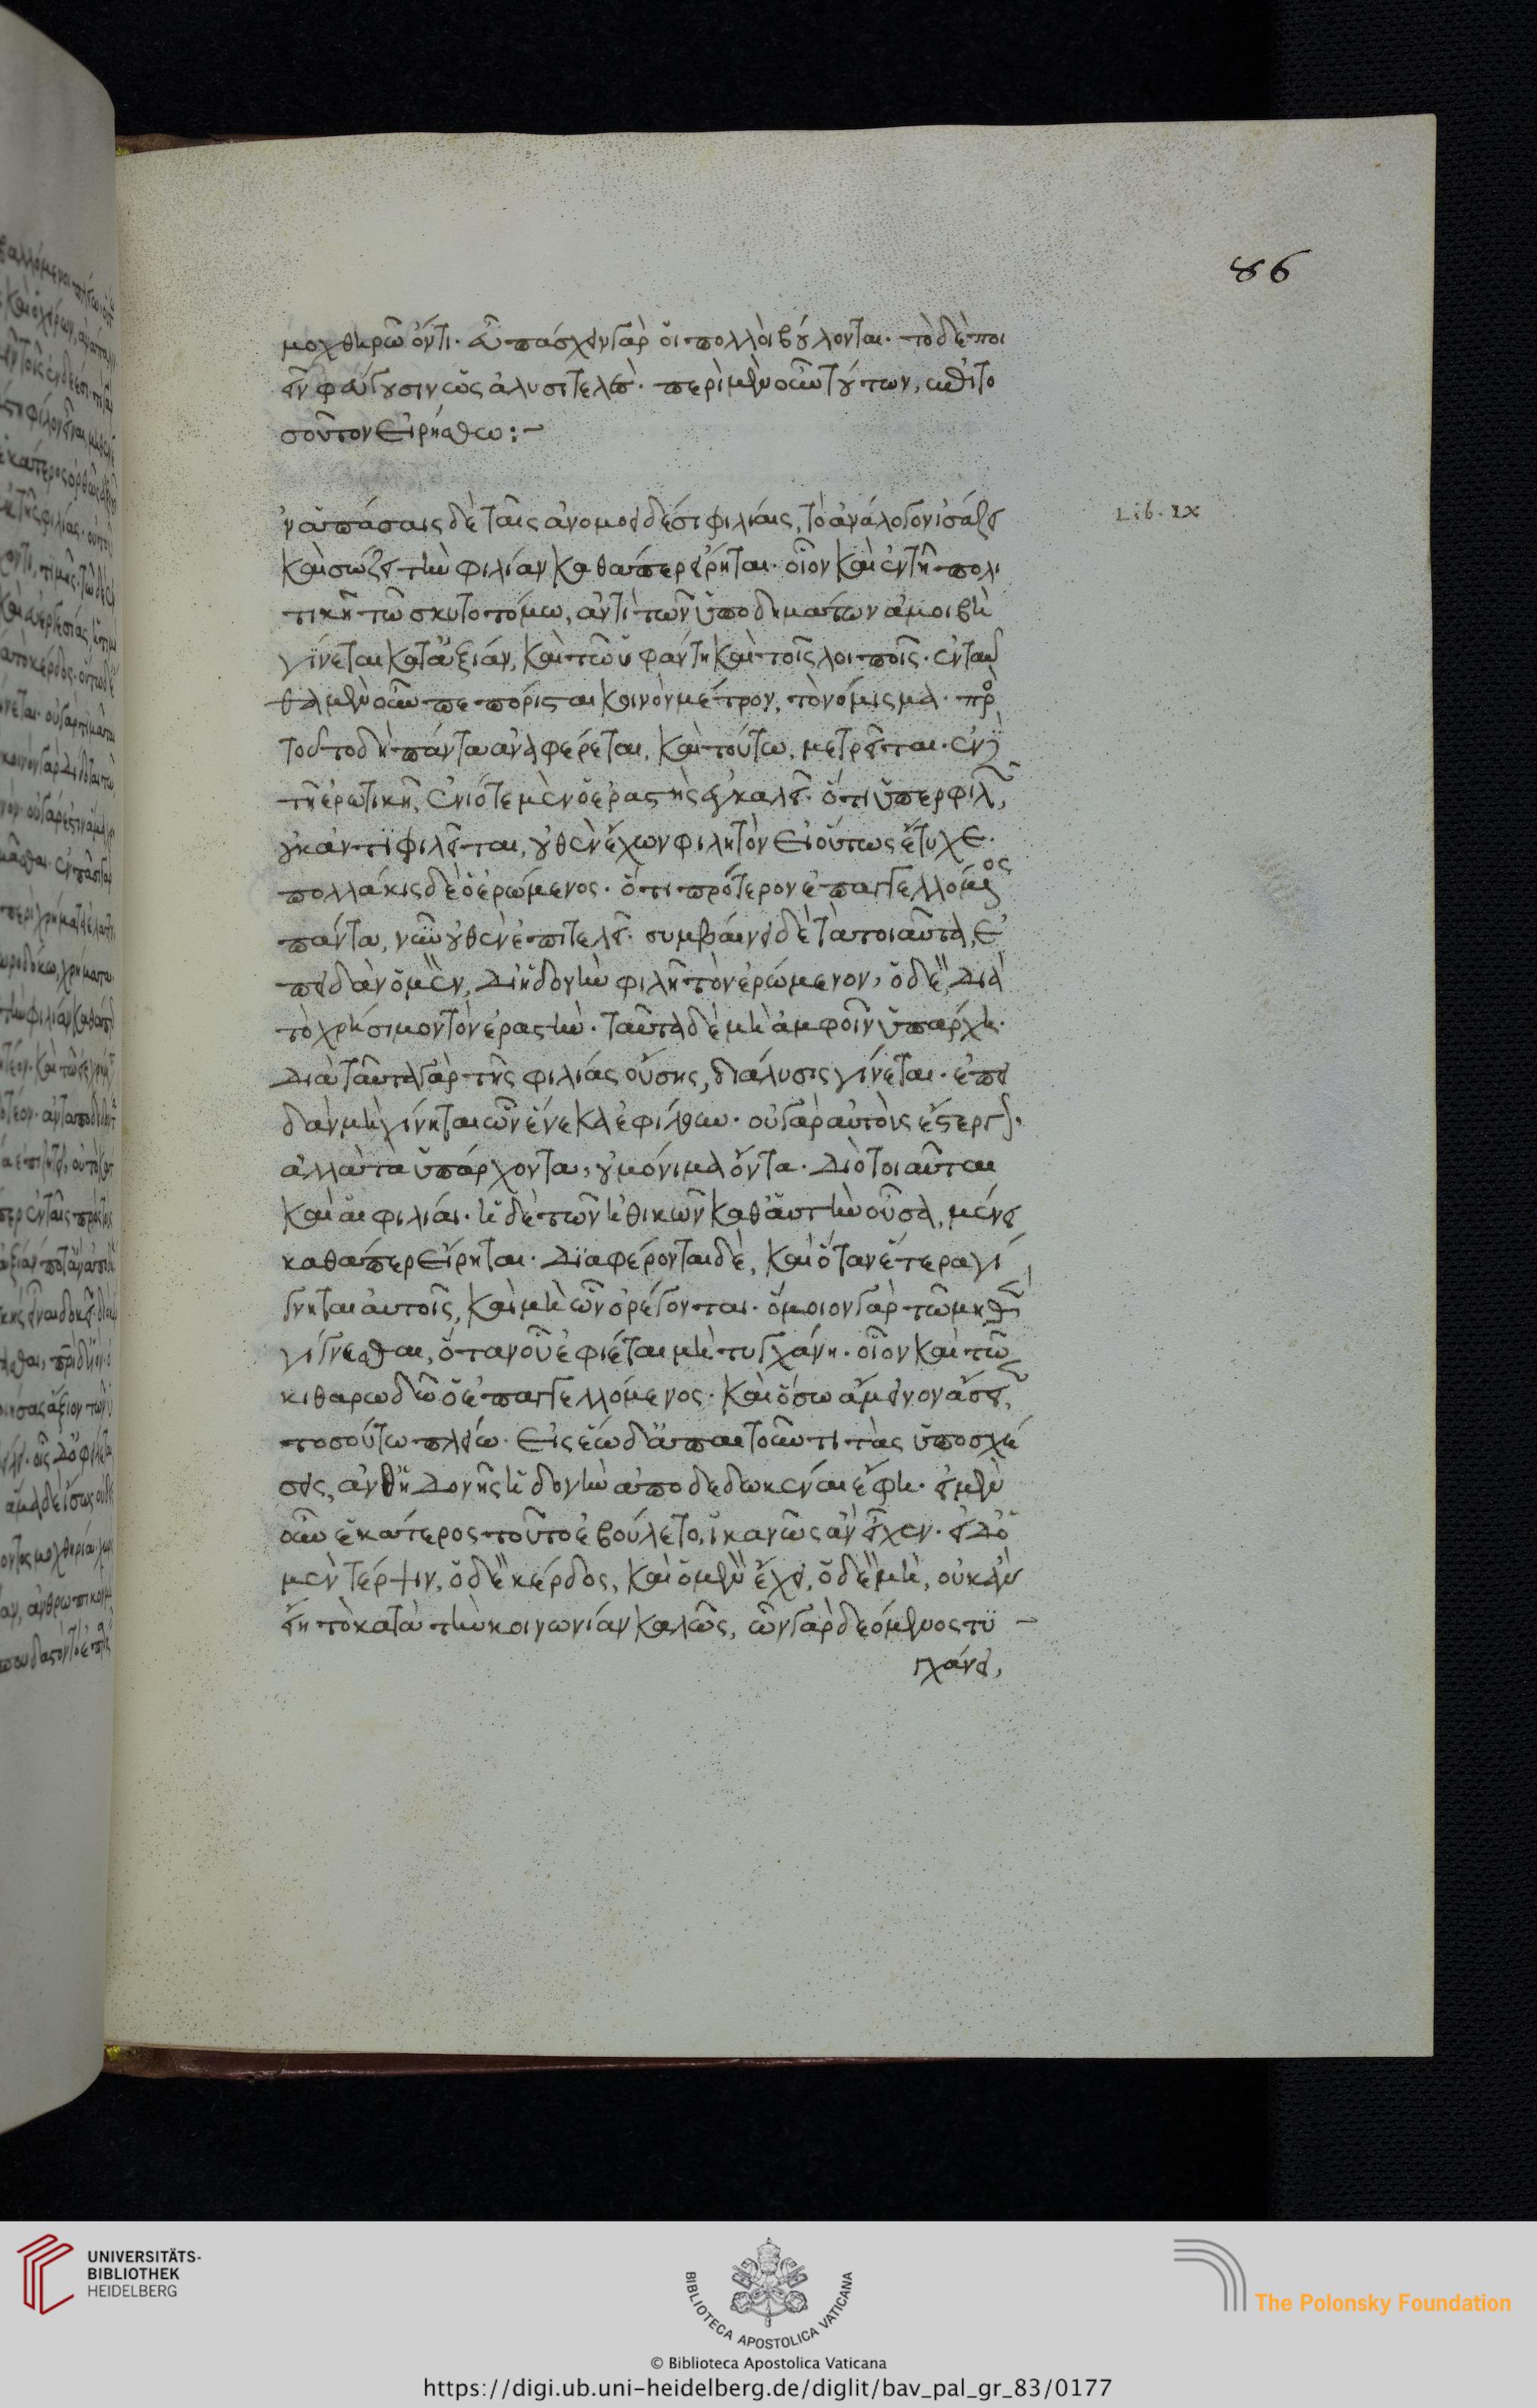 86
μοχθηρῶ ὄντι. εὖ πάσχειν γὰρ ὁι πολλὸι βούλονται. τὸ δὲ ποι
εῖν φεύγουσιν ὡς ἀλυσιτελὲς. περὶ μὲν οὖν τούτων, ἐπὶ το
σοῦτον εἰρήσθω:~
Lib. IX
ν ἁπάσαις δὲ ταῖς ἀνομοειδέσι φιλίαις, τὸ ἀνάλογον ἰσάζει
καὶ σώζει τὴν φιλίαν καθάπερ εἴρηται. οἷον καὶ ἐν τῆ πολι
τικῆ τῶ σκυτοτόμω, ἀντὶ τῶν ὑποδημάτων ἀμοιβὴ
γίνεται κατ' ἀξίαν, καὶ τῶ ὑφάντη καὶ τοῖς λοιποῖς. ἐνταῦ
θα μὲν οὖν πεπόρισται κοινὸν μέτρον, τὸ νόμισμα. πρὸς
τοῦτο δὴ πάντα ἀναφέρεται, καὶ τούτω, μετρεῖται. ἐν δὲ
τῆ ἐρωτικῆ, ἐνιότε μὲν ὁ ἐραστὴς ἐγκαλεῖ. ὅτι ὑπερφιλῶν,
οὐκ ἀντιφιλεῖται, οὐθὲν ἔχων φιλητὸν εἰ οὕτως ἔτυχε.
πολλάκις δὲ ὁ ἐρώμενος. ὅτι πρότερον ἐπαγγελλόμενος
πάντα, νῦν οὐθὲν ἐπιτελεῖ. συμβαίνει δὲ τὰ τοιαῦτα, ἐ
πειδὰν ὁ μὲν, δι' ἡδονὴν φιλῆ τὸν ἐρώμενον, ὁ δὲ, διὰ
τὸ χρήσιμον τὸν ἐραστὴν. ταῦτα δὲ μὴ ἀμφοῖν ὑπάρχη.
διὰ ταῦτα γὰρ τῆς φιλίας οὔσης, διάλυσις γίνεται. ἐπει
δὰν μὴ γίνηται ὧν ἕνεκα ἐφίλουν. οὐ γὰρ αὐτοὺς ἔστεργον.
ἀλλὰ τὰ ὑπάρχοντα, οὐ μόνιμα ὄντα. διὸ τοιαῦται
καὶ ἁι φιλίαι. ἡ δὲ τῶν ἠθικῶν καθ' ἁυτὴν οὖσα, μένει
καθάπερ εἴρηται. διαφέρονται δὲ, καὶ ὅταν ἕτερα γί
γνηται ἀυτοῖς, καὶ μὴ ὧν ὀρέγονται. ὅμοιον γὰρ τῶ μηθὲν
γίγνεσθαι, ὅταν οὗ ἐφίεται μὴ τυγχάνη. οἷον καὶ τῶ
κιθαρωδῶ ὁ ἐπαγγελλόμενος. καὶ ὅσω ἄμεινον ἄσειεν,
τοσούτω πλείω. εἰς ἕω δ' ἀπαιτοῦντι τὰς ὑποσχέ
σεις, ἀνθ' ἡδονῆς ἡδονὴν ἀποδεδωκέναι ἔφη. εἰ μὲν
οὖν ἑκάτερος τοῦτο ἐβούλετο, ἱκανῶς ἂν εἶχεν. εἰ δ' ὁ
μὲν τέρψιν, ὁ δὲ κέρδος, καὶ ὁ μὲν ἔχει, ὁ δὲ μὴ, οὐκ ἂν
εἴη τὸ κατὰ τὴν κοινωνίαν καλῶς, ὧν γὰρ δεόμενος τυ
γχάνει,
UNIVERSITÄTS-
BIBLIOTHEK
HEIDELBERG
BIBLIOTECA APOSTOLICA VATICANA
The Polonsky Foundation
© Biblioteca Apostolica Vaticana
https://digi.ub.uni-heidelberg.de/diglit/bav_pal_gr_83/0177